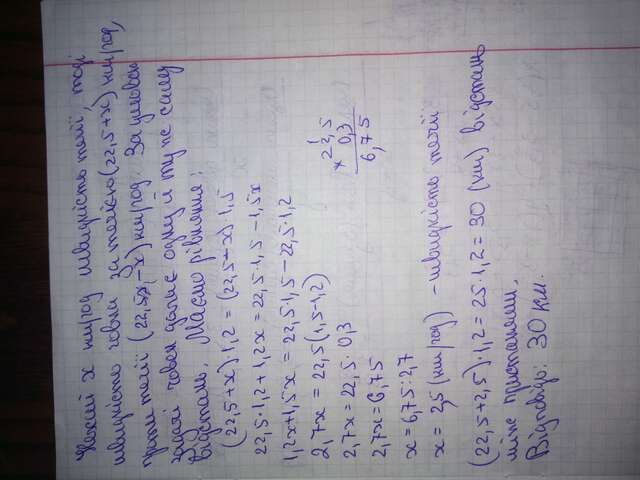 Нехай х км/год швидкість течії, тоді
швидкість човна за течією (22,5+х) км/год,
проти течії (22,5-х) км/год. За умовою
задачі човен долає одну й ту же саму
відстань. Маємо рівняння:
(22,5+х)·1,2 = (22,5-х)·1,5
22,5·1,2+1,2х = 22,5·1,5-1,5х
1,2х+1,5х = 22,5·1,5-22,5·1,2
2,7х = 22,5(1,5-1,2)
2,7х = 22,5·0,3
2,7х = 6,75
22,5
× 0,3
6,75
х = 6,75:2,7
х = 2,5 (км/год) - швидкість течії
(22,5+2,5)·1,2 = 25·1,2 = 30 (км) відстань
між пристанями.
Відповідь: 30 км.